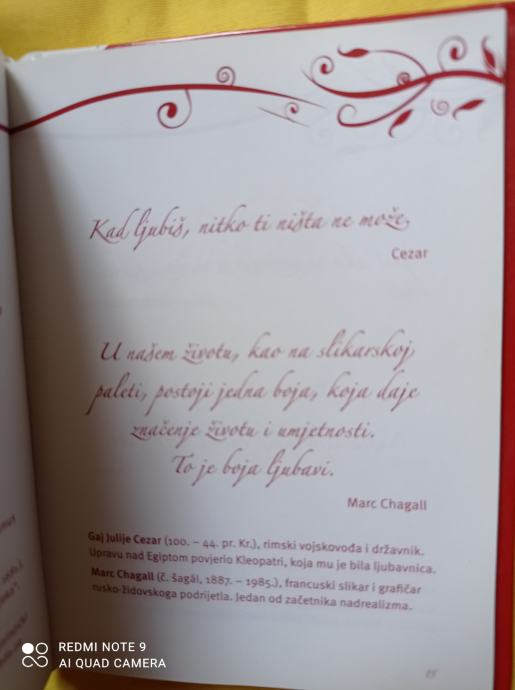 Kad ljubiš, nitko ti ništa ne može.
Cezar
U našem životu, kao na slikarskoj
paleti, postoji jedna boja, koja daje
značenje životu i umjetnosti.
To je boja ljubavi.
Marc Chagall
Gaj Julije Cezar (100. – 44. pr. Kr.), rimski vojskovođa i državnik.
Upravu nad Egiptom povjerio Kleopatri, koja mu je bila ljubavnica.
Marc Chagall (č. šagál, 1887. – 1985.), francuski slikar i grafičar
rusko-židovskoga podrijetla. Jedan od začetnika nadrealizma.
15
REDMI NOTE 9
AI QUAD CAMERA